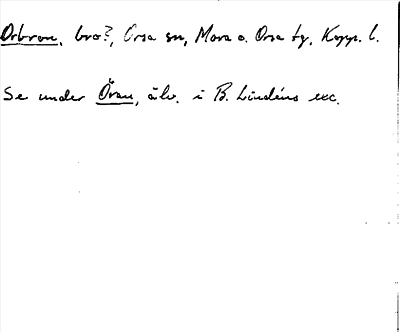 Orbron, bro?, Orsa sn, Mora o. Orsa tg, Kopp. l.
Se under Öran, älv. i B. Lindéns exc.